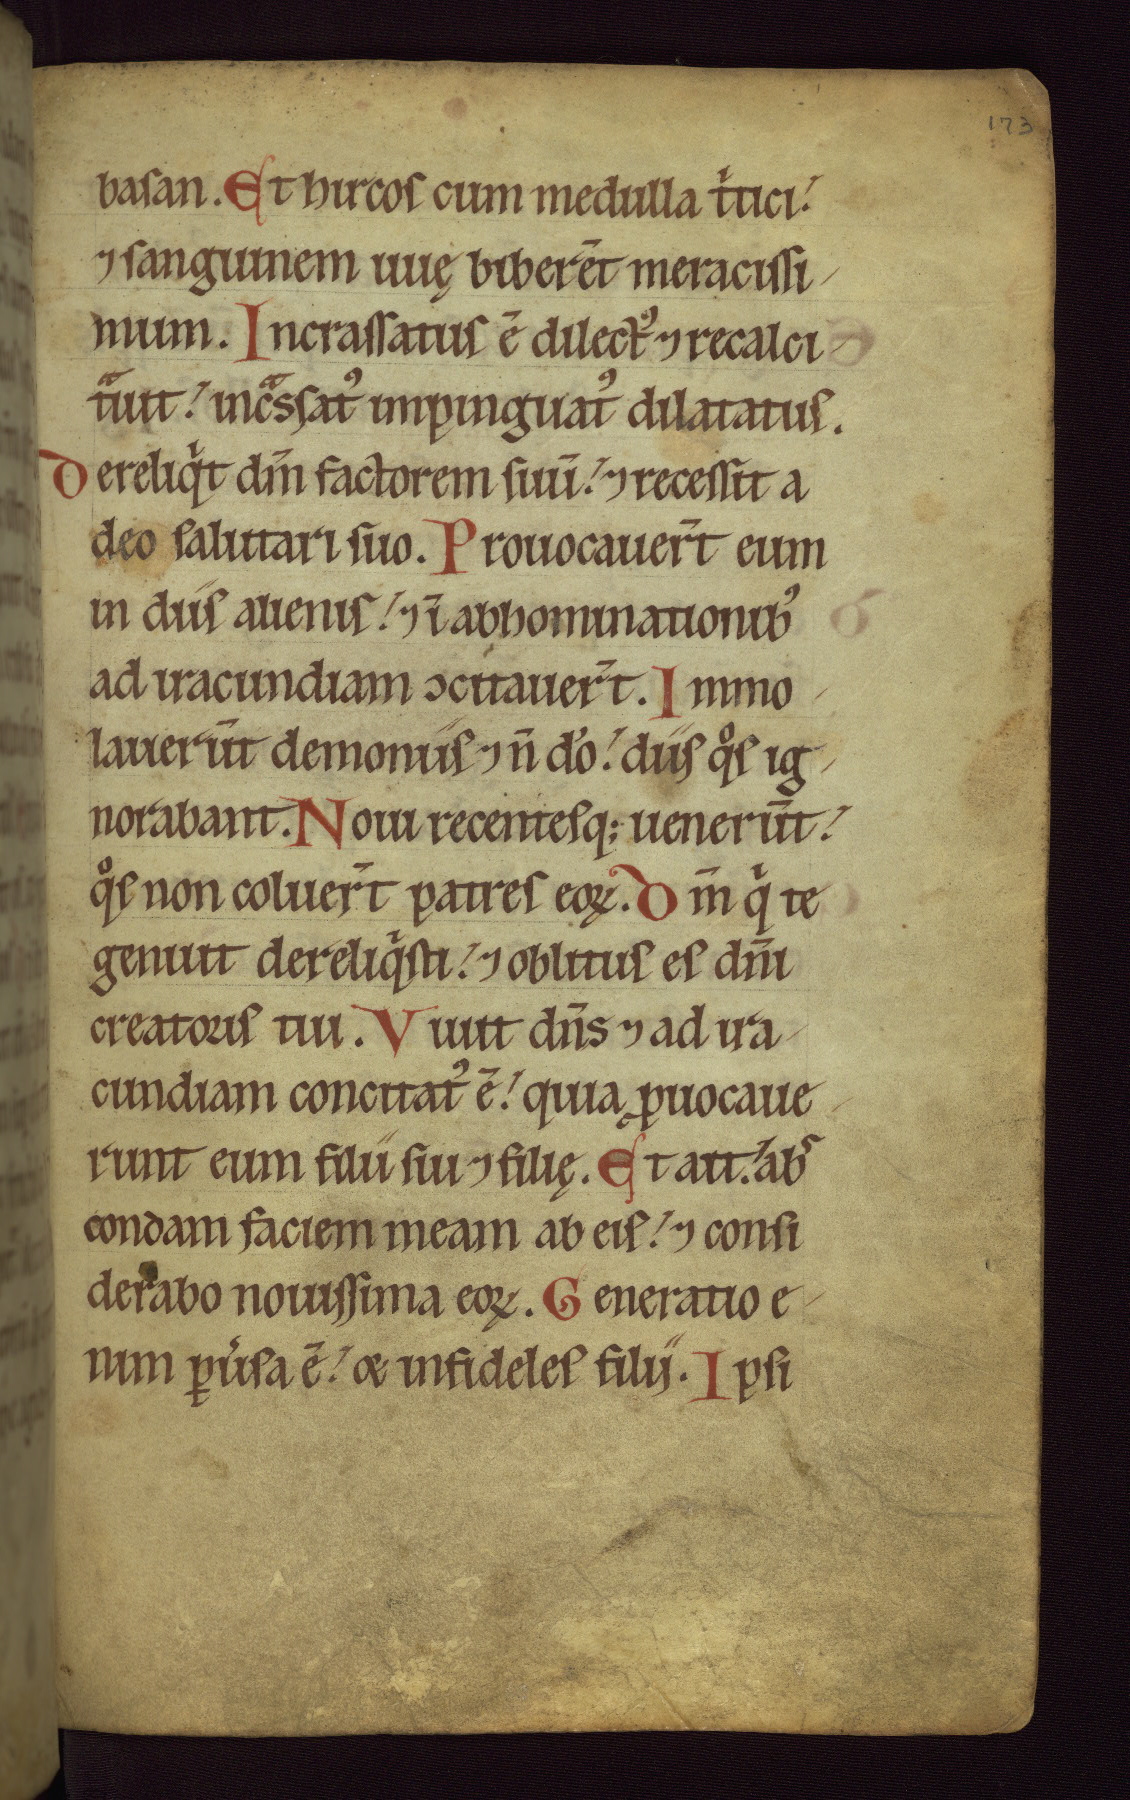 173
basan. Et hircos cum medulla tͥtici.
⁊ sanguinem uuę biberēt meracissi
mum. Incrassatus ē dilectꝰ ⁊ recalci
tͣuit. incͣssatꝰ impinguatꝰ dilatatus.
Dereliqͥt dm̄ factorem suū. ⁊ recessit a
deo salutari suo. Prouocauer̄t eum
in diis alienis. ⁊ ī abhominationibꝰ
ad iracundiam ↄcitauer̄t. Immo
lauerūt demoniis ⁊ n̄ do. diis qͦs ig
norabant. Noui recentesq; uenerūt.
qͦs non coluer̄t patres eoꝝ. Dm̄ qͥ te
genuit dereliqͥsti. ⁊ oblitus es dn̄i
creatoris tui. Viuit dn̄s ⁊ ad ira
cundiam concitatꝰ ē. quia ꝓuocaue
runt eum filii sui ⁊ filię. Et ait. abs
condam faciem meam ab eis. ⁊ consi
derabo nouissima eoꝝ. Generatio e
nim ꝑuͥsa ē. & infideles filij. Ipsi